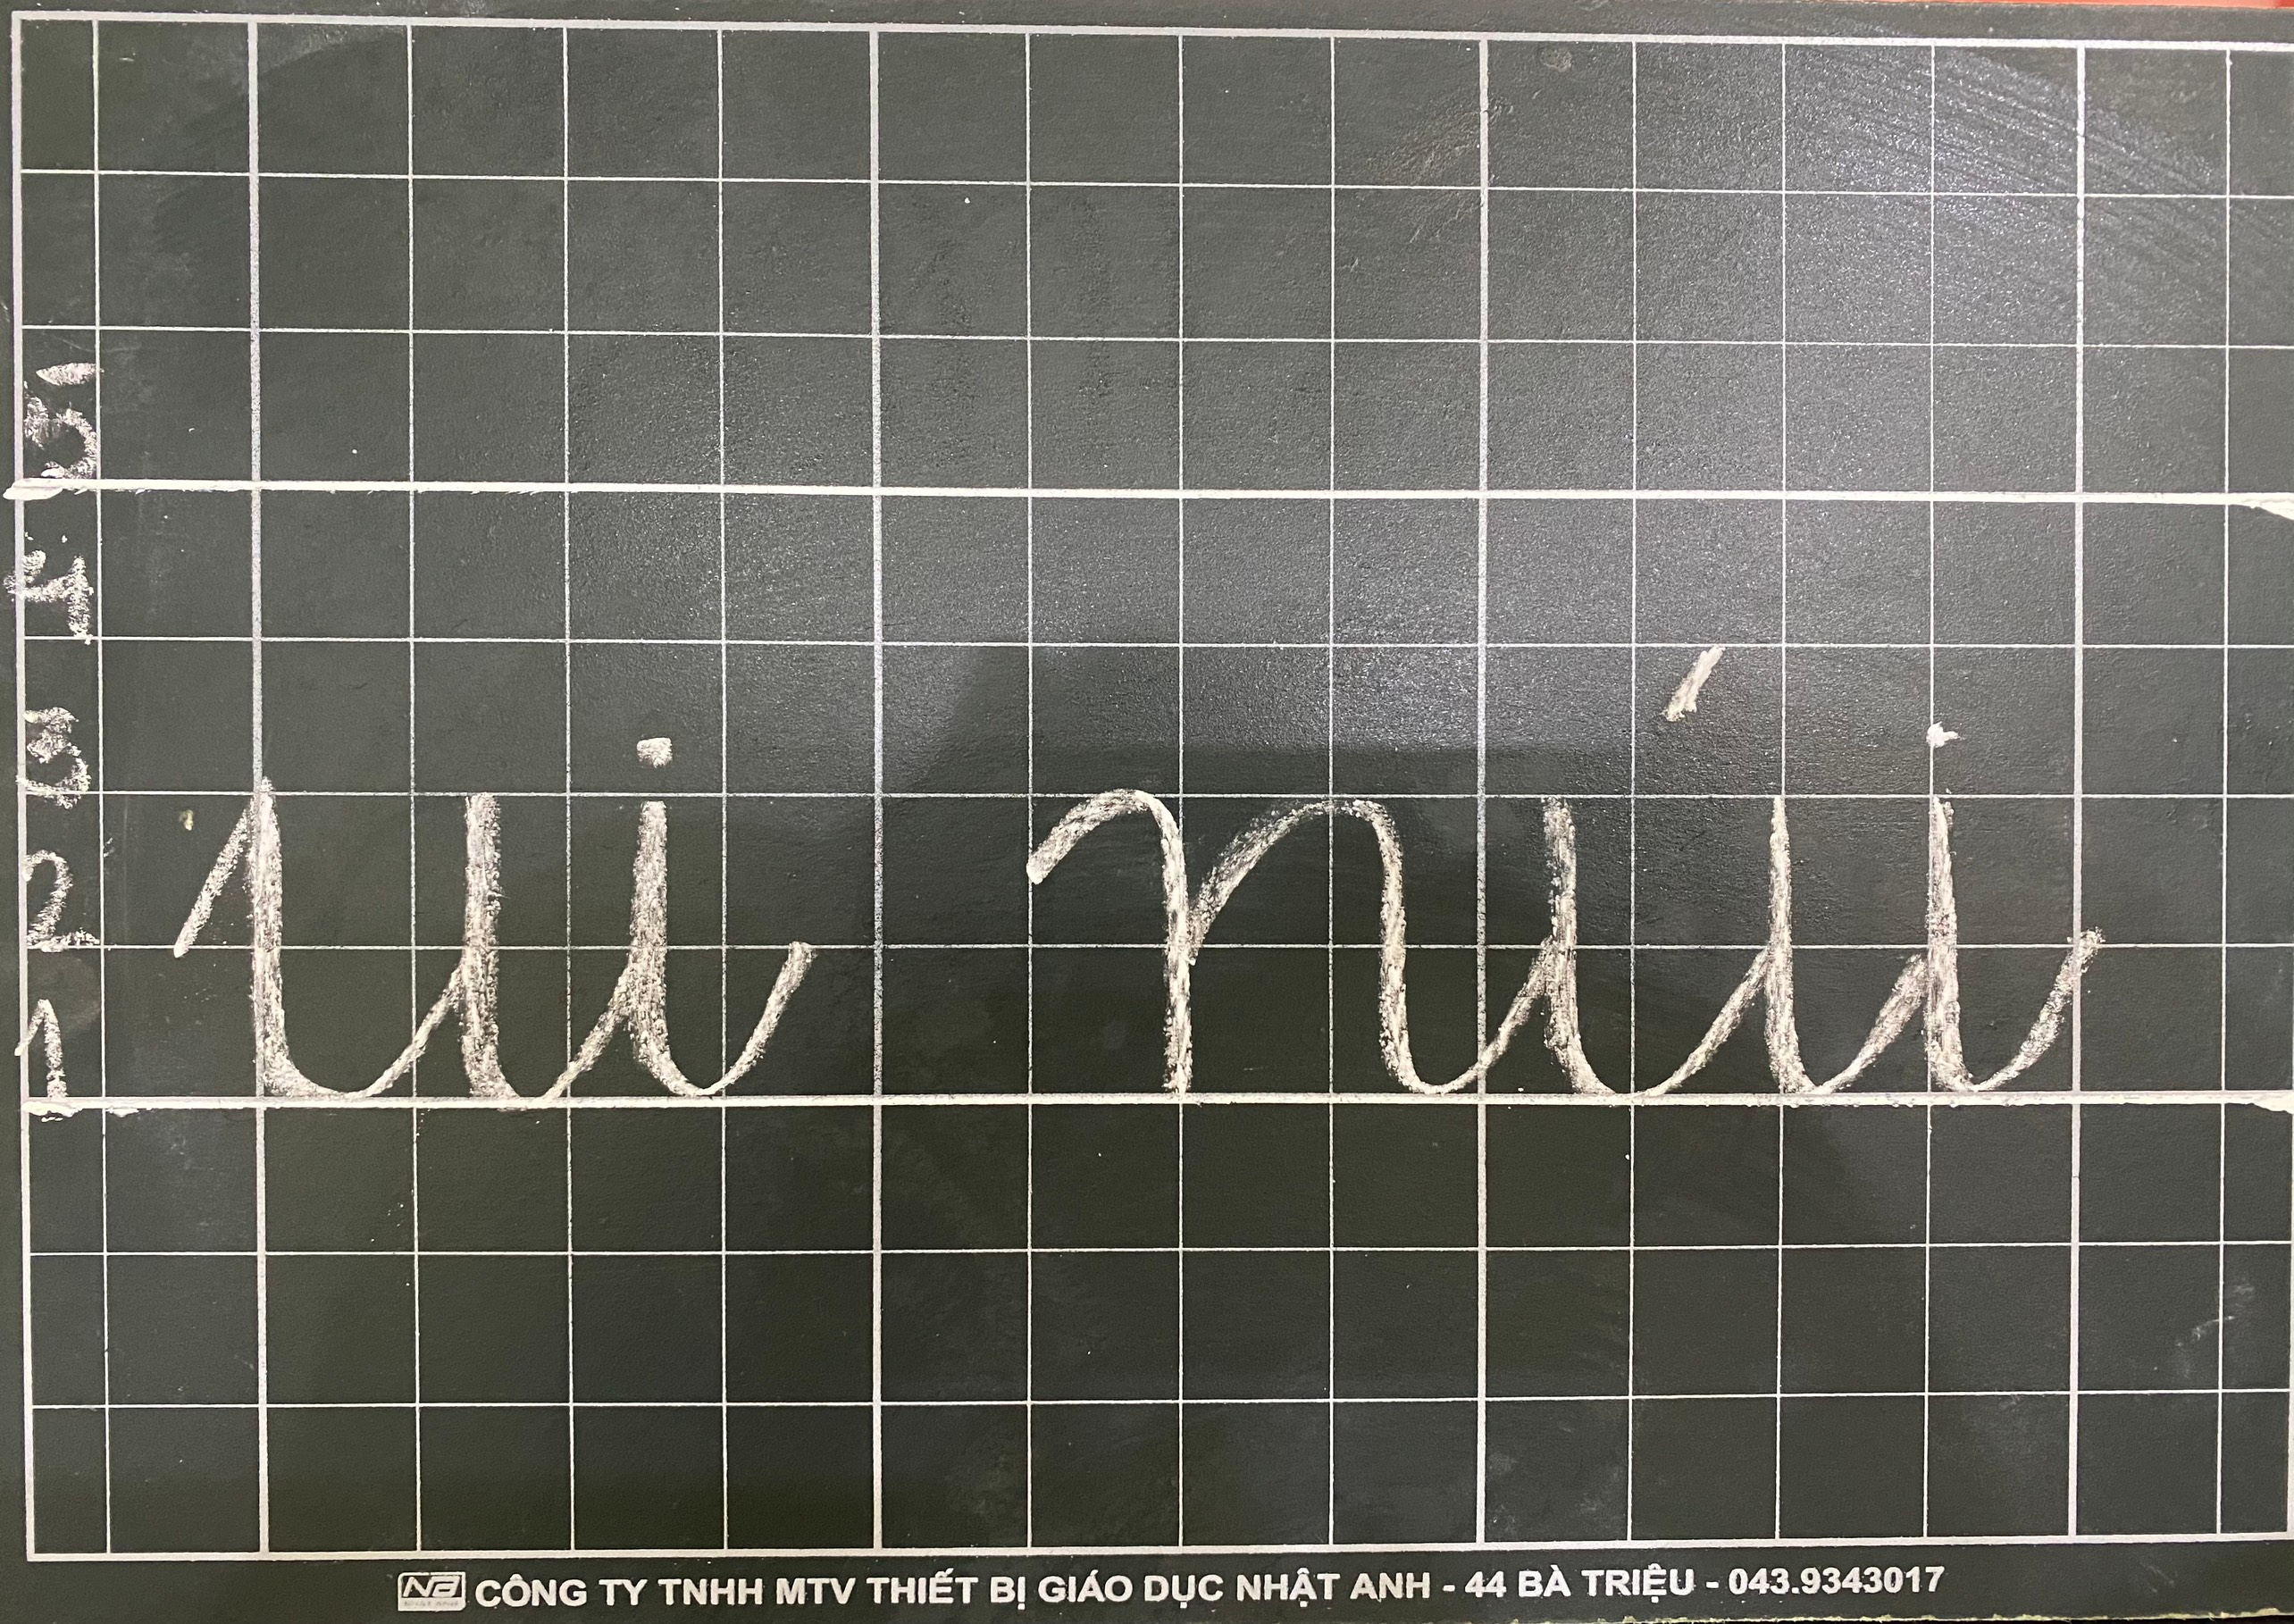 ui núi
5
4
3
2
1
Na CÔNG TY TNHH MTV THIẾT BỊ GIÁO DỤC NHẬT ANH - 44 BÀ TRIỆU - 043.9343017